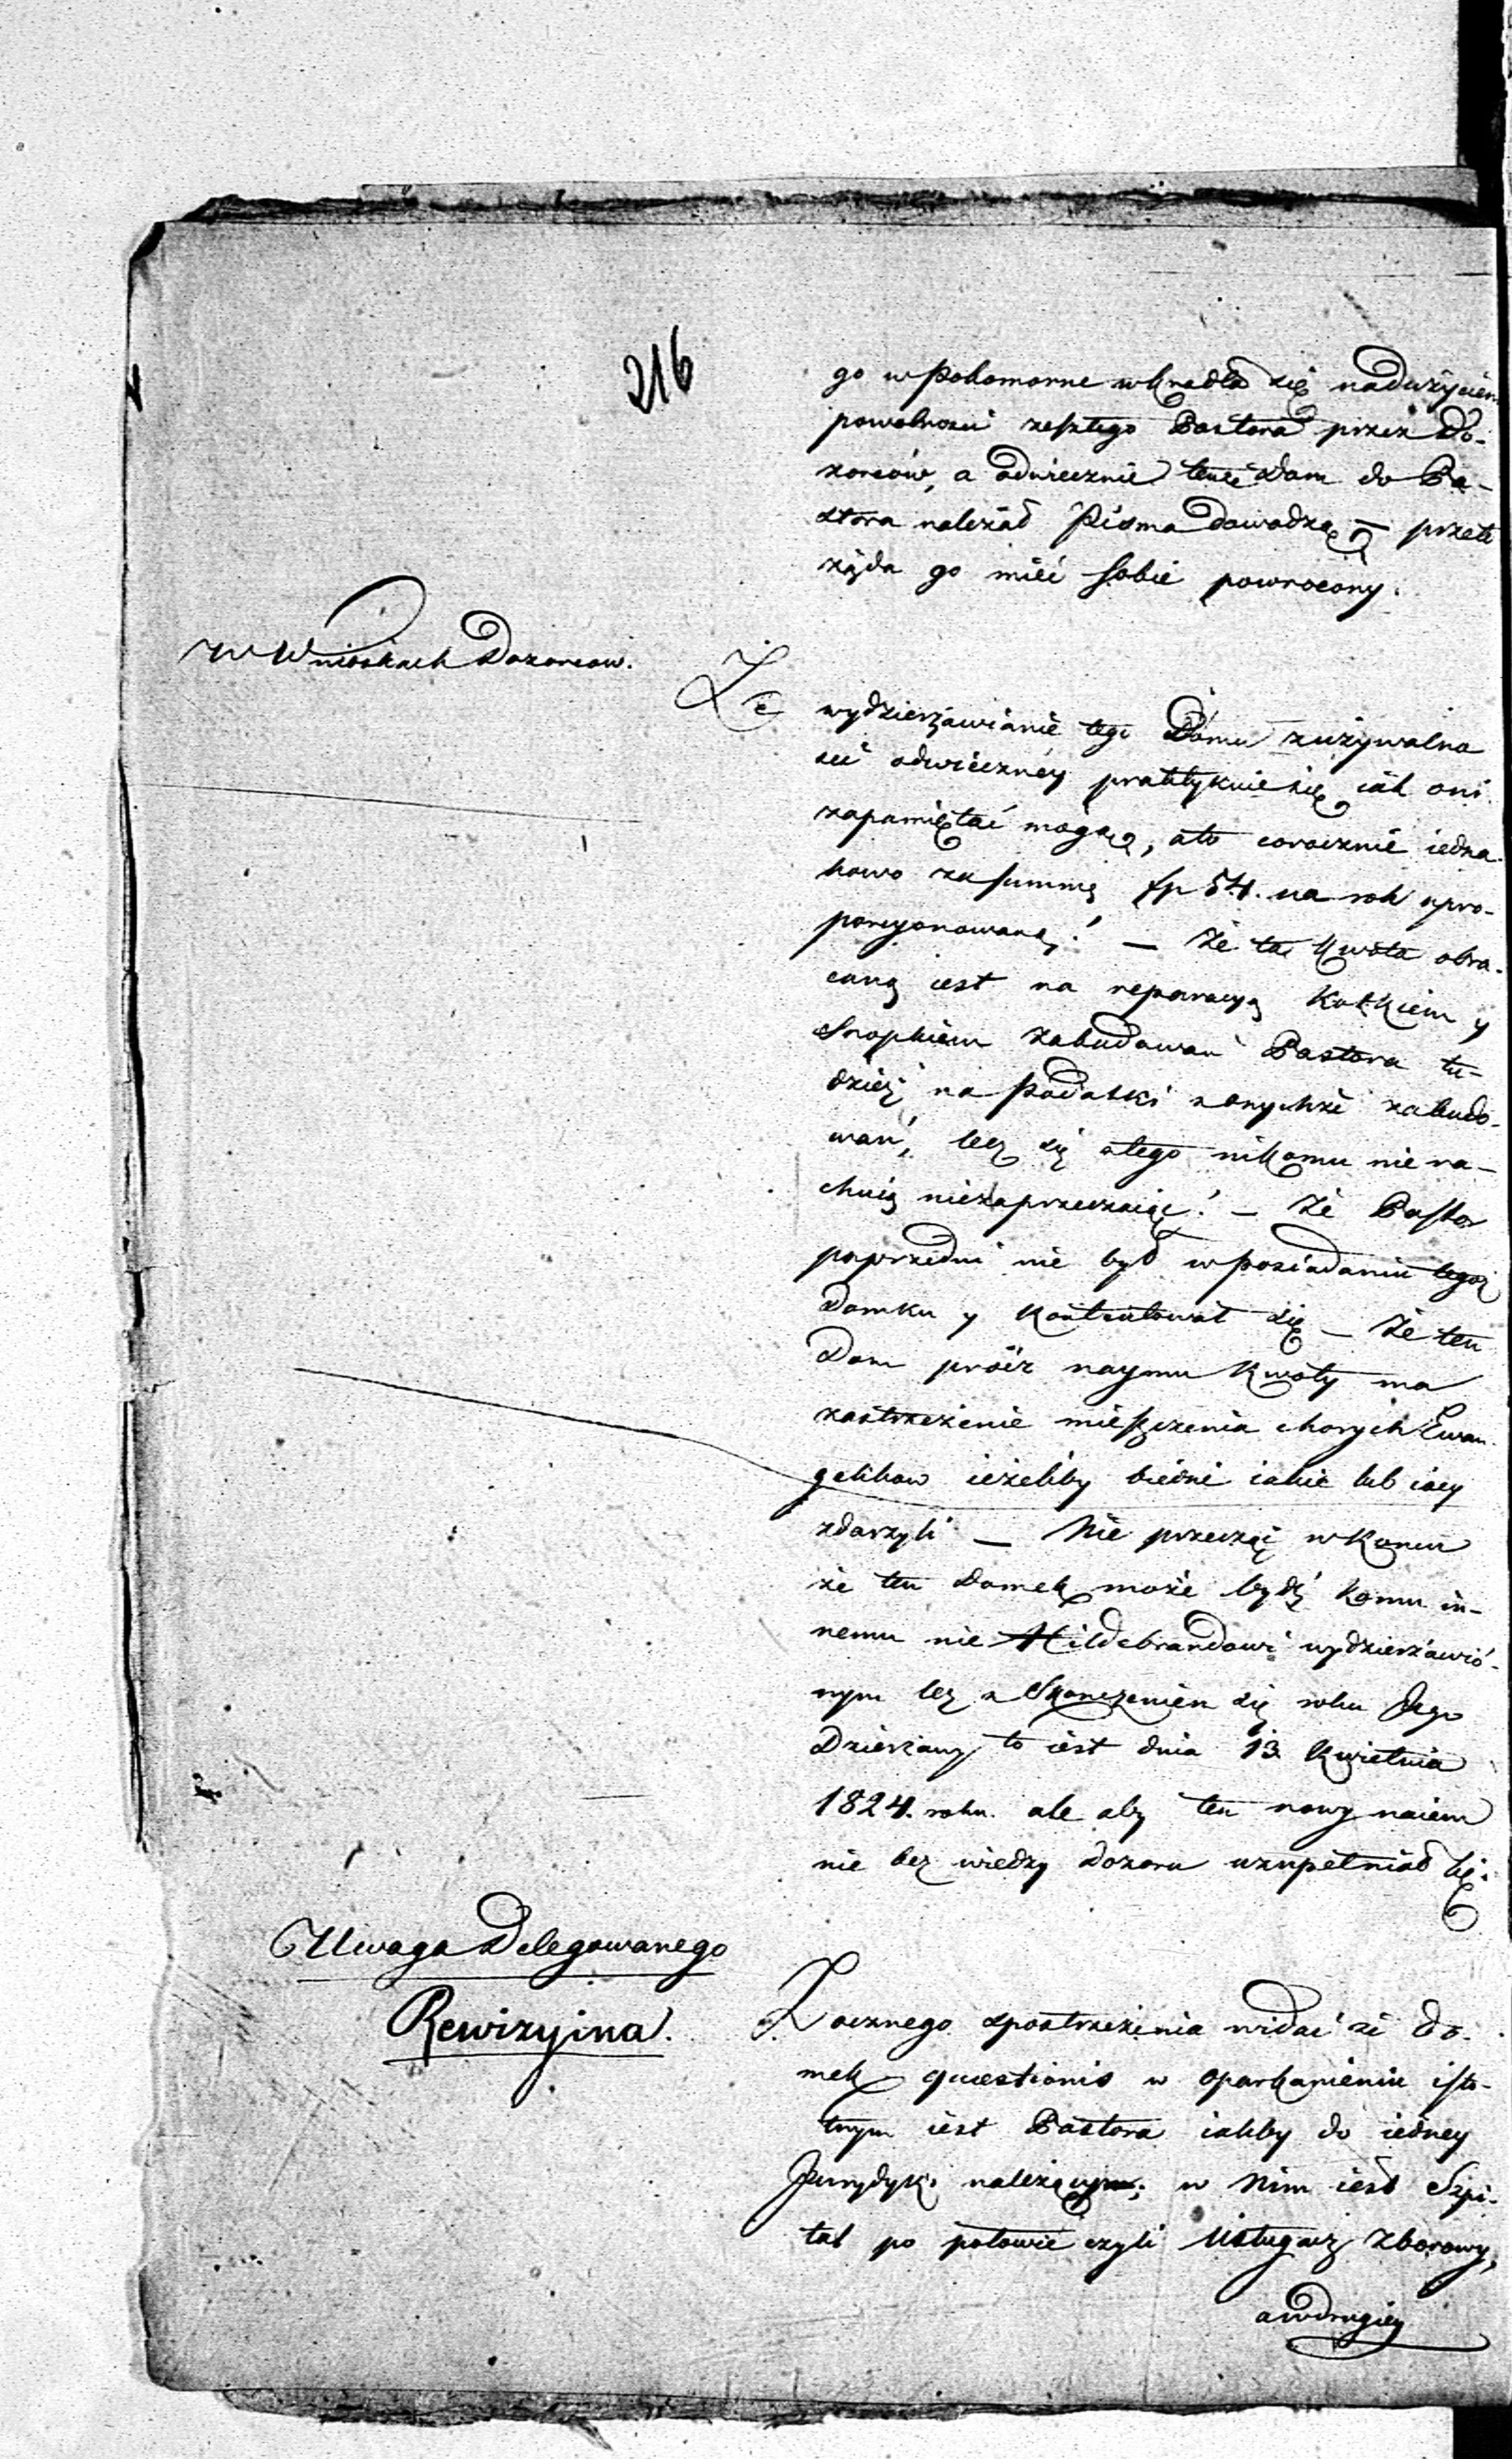 216
go w Pokomorne wkradło się nadużyciem
powolności zeszłego Pastora przez Do-
zorców, a odwiecznie tenże Dom do Pa-
stora należał Pisma dowodzą — przeto
żąda go mieć sobie powrócony.
W Wnioskach Dozorcow.
Że wydzierżawianie tego Domu zużywalno
ści odwieczney praktykuie się iak oni
zapamiętać mogą, a to corocznie iedna-
kowo za summę fp 54. na rok upro-
porcyonowaną! — Że ta kwota obra-
caną iest na reparacyą Kołkiem y
Snopkiem zabudowań Pastora tu-
dzież na Podatki z onychże zabudo-
wań, lecz się z tego nikomu nie ra-
chuią niezaprzeczaią! — Że Pastor
poprzedni nie był w posiadaniu tegoż
Domku y kontentował się — Że ten
Dom prócz naymu kwoty ma
zastrzeżenie mieszczenia chorych Ewan
gelikow ieżeliby biedni iakie lub iacy
zdarzyli — Nie przeczą w Koncu
że ten Domek może bydź komu in-
nemu nie Hildebrandowi wydzierżawio-
nym lecz z Skonczeniem się roku Jego
Dzierżawy to iest dnia 13 Kwietnia
1824. roku. ale aby ten nowy naiem
nie bez wiedzy dozoru uzupełniał się.
Uwaga Delegowanego
Rewizyina.
Z ocznego spostrzeżenia widać że Do-
mek questionis w oparkanieniu isto-
tnym iest Pastora iakby do iedney
Jurydyki należącym; w nim iest Szpi-
tal po połowie czyli Usługacz Zborowy,
a w drugiey